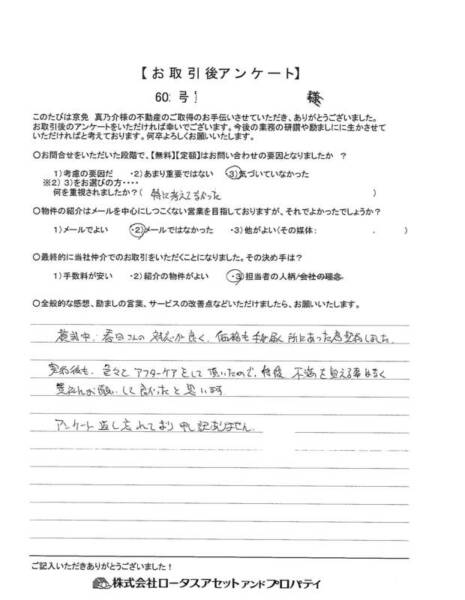 【お取引後アンケート】
60 号 様
このたびは京免 真乃介様の不動産のご取得のお手伝いさせていただき、ありがとうございました。
お取引後のアンケートをいただければ幸いでございます。今後の業務の研鑽や励ましにに生かさせて
いただければと考えております。何卒よろしくお願いいたします。
○お問合せをいただいた段階で、【無料】【定額】はお問い合わせの要因となりましたか ？
1)考慮の要因だ ・2)あまり重要ではない ・3)気づいていなかった
※2) 3)をお選びの方・・・・
何を重視されましたか？( 特に考えてなかった )
○物件の紹介はメールを中心にしつこくない営業を目指しておりますが、それでよかったでしょうか？
1)メールでよい ・2)メールではなかった ・3)他がよい(その媒体： )
○最終的に当社仲介でのお取引をいただくことになりました。その決め手は？
1)手数料が安い ・2)紹介の物件がよい ・3)担当者の人柄/会社の理念
○全般的な感想、励ましの営業、サービスの改善点などいただけましたら、お願いいたします。
春日さんの 対応が良く、価格も手の届く所にあった為 契約しました。
契約後も、色々と アフターケアをして頂いたので、 不満を覚える事はなく
お願いして良かったと思います
アンケート 返し忘れており 申し訳ありません。
ご記入いただきありがとうございました！
株式会社ロータスアセットアンドプロパティ